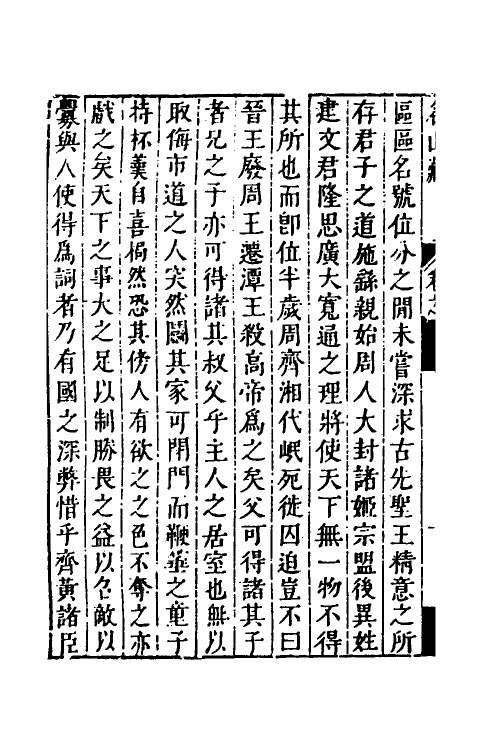 區區名號位分之閒未嘗深求古先聖王精意之所
存君子之道施繇親始周人大封諸姬宗盟後異姓
建文君隆思廣大寬通之理將使天下無一物不得
其所也而卽位半歲周齊湘代岷死徙囚迫豈不曰
晉王廢周王遷潭王殺高帝爲之矣父可得諸其子
者兄之子亦可得諸其叔父乎主人之居室也無以
取侮市道之人突然鬭其家可閉門而鞭箠之童子
持杯羹自喜惴然恐其傍人有欲之之色不奪之亦
戲之矣天下之事大之足以制勝畏之益以召敵以
釁與人使得爲詞者乃有國之深弊惜乎齊黃諸臣